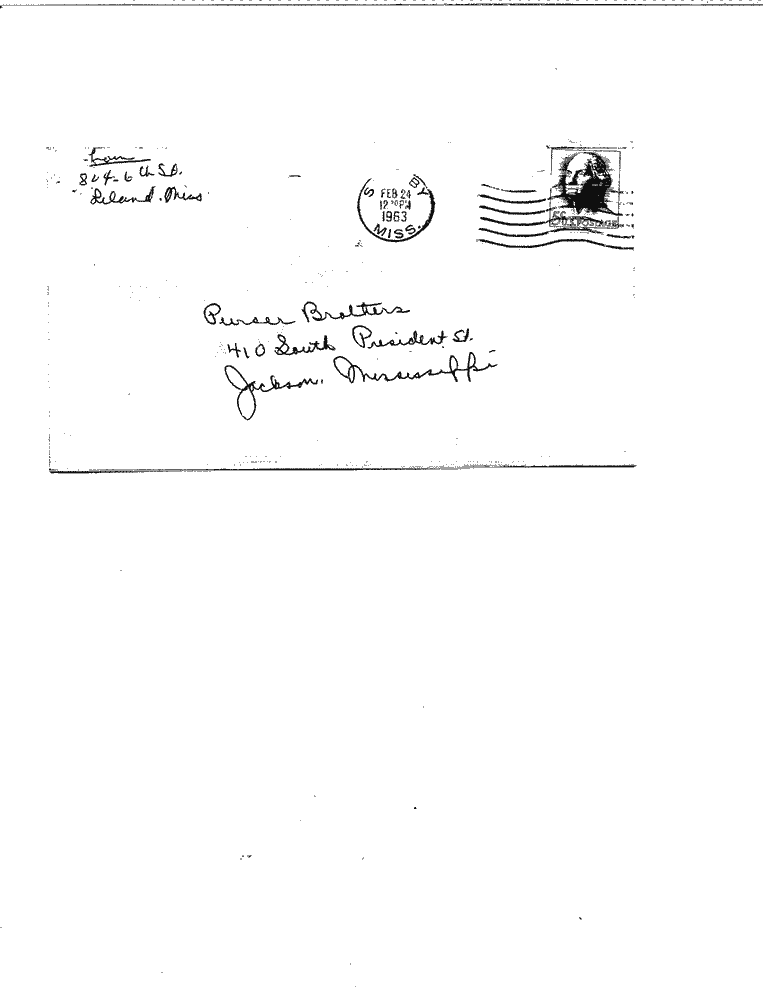 from
804-6th St.
Leland. Miss
S BY
FEB 24
12 PM
1963
MISS.
5¢ U.S. POSTAGE
Purser Brothers
410 South President St.
Jackson, Mississippi